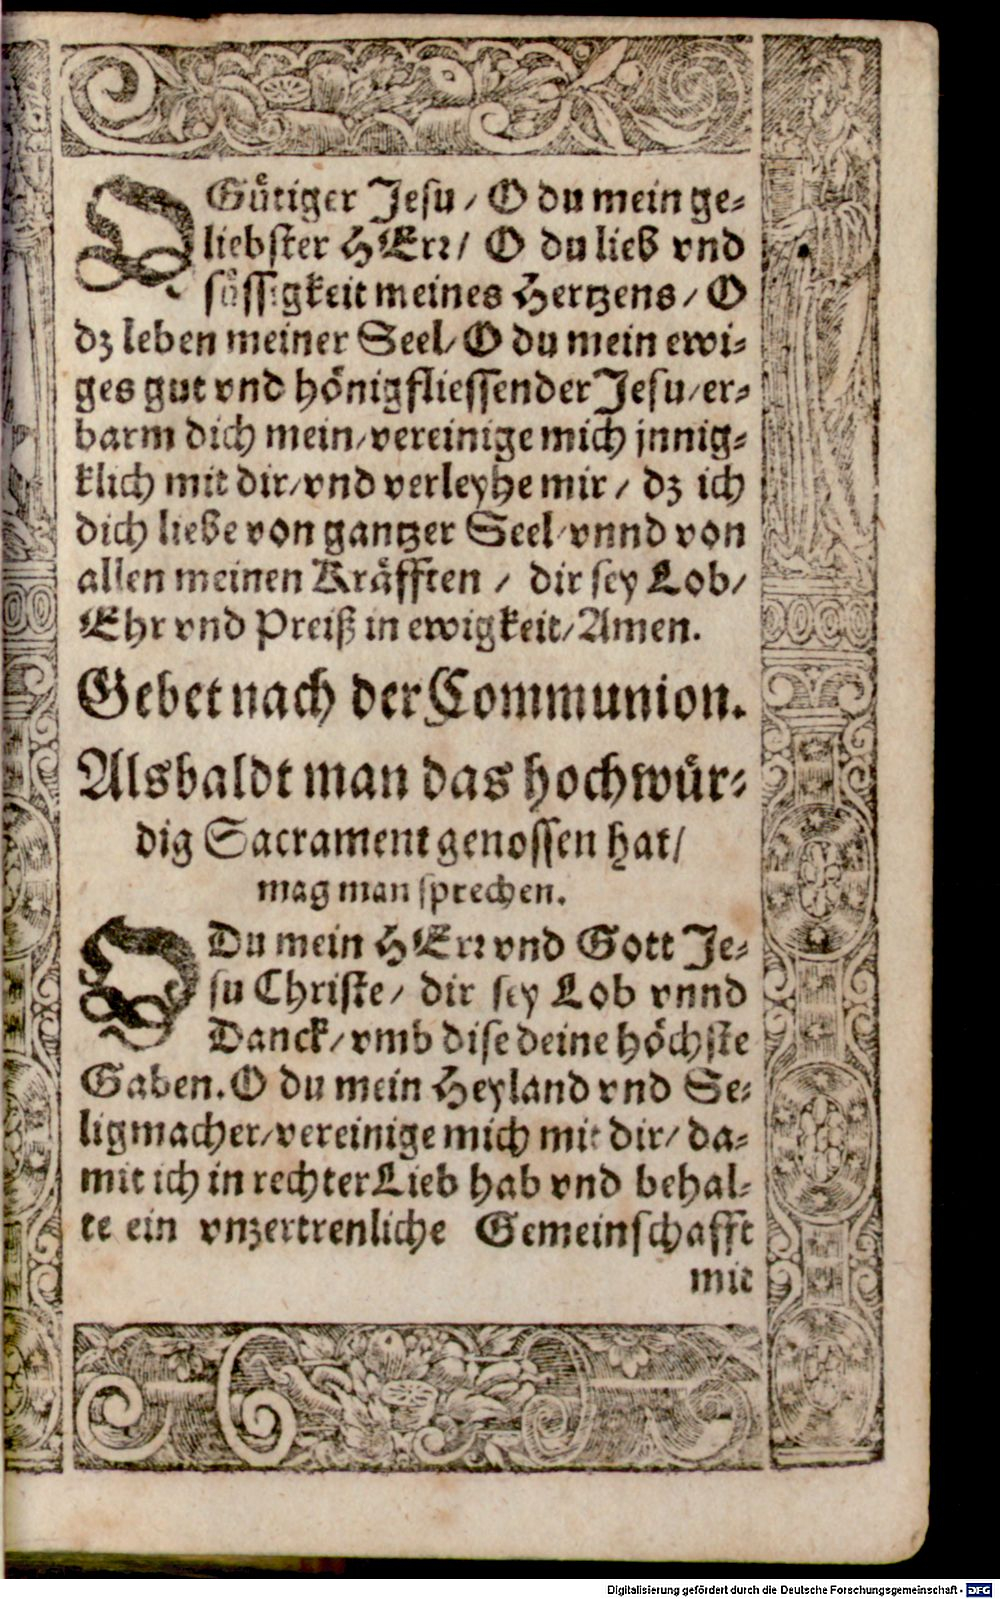 O Gůtiger Jesu / O du mein ge-
liebster HErr / O du lieb vnd
sůssigkeit meines Hertzens / O
dz leben meiner Seel / O du mein ewi-
ges gut vnd hönigfliessender Jesu / er-
barm dich mein / vereinige mich jnnig-
klich mit dir / vnd verleyhe mir / dz ich
dich liebe von gantzer Seel / vnnd von
allen meinen Kräfften / dir sey Lob /
Ehr vnd Preiß in ewigkeit / Amen.
Gebet nach der Communion.
Alsbaldt man das hochwür-
dig Sacrament genossen hat /
mag man sprechen.
O Du mein HErr vnd Gott Je-
su Christe / dir sey Lob vnnd
Danck / vmb dise deine höchste
Gaben. O du mein Heyland vnd Se-
ligmacher / vereinige mich mit dir / da-
mit ich in rechter Lieb hab vnd behal-
te ein vnzertrenliche Gemeinschafft
mit
Digitalisierung gefördert durch die Deutsche Forschungsgemeinschaft - DFG